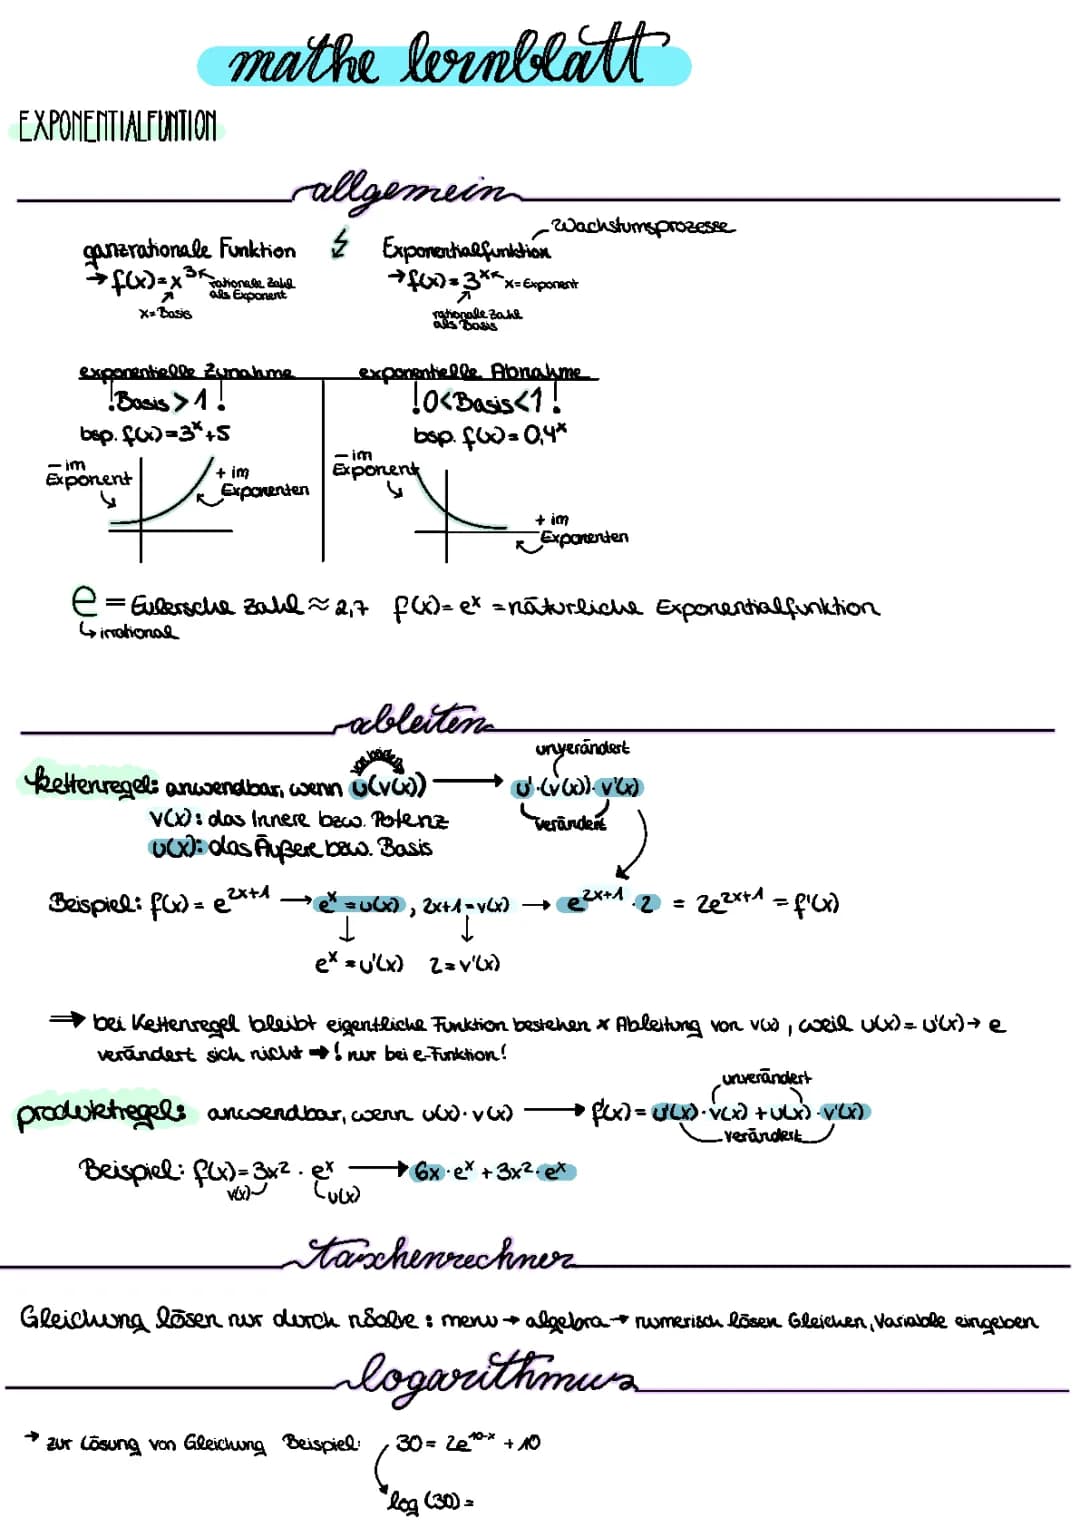 mathe lernblatt
EXPONENTIALFUNTION
allgemein
Wachstumsprozesse
ganzrationale Funktion Exponentialfunktion
→ f(x)=x³ rationale Zahl als Exponent
x=Basis
→ f(x)=3ˣ x=Exponent
rationale Zahl als Basis
exponentielle Zunahme exponentielle Abnahme
!Basis>1! !0<Basis<1!
bsp. f(x)=3ˣ+5 bsp. f(x)=0,4ˣ
- im Exponent
+ im Exponenten
- im Exponent
+ im Exponenten
e = Eulersche Zahl ≈ 2,7 f(x)=eˣ =natürliche Exponentialfunktion
↳ irrational
ableiten
unverändert
kettenregel: anwendbar, wenn u(v(x)) → u'·(v(x))·v'(x)
verändert
v(x): das Innere bzw. Potenz
u(x): das Äußere bzw. Basis
Beispiel: f(x)=e²ˣ⁺¹ → eˣ=u(x), 2x+1=v(x) → e²ˣ⁺¹·2 = 2e²ˣ⁺¹ = f'(x)
↓ ↓
eˣ=u'(x) 2=v'(x)
⇒ bei Kettenregel bleibt eigentliche Funktion bestehen × Ableitung von v(x), weil u(x)=u'(x)→ e
verändert sich nicht → ! nur bei e-Funktion!
unverändert
produktregel: anwendbar, wenn u(x)·v(x) → f'(x)=u'(x)·v(x)+u(x)·v'(x)
verändert
Beispiel: f(x)=3x²·eˣ → 6x·eˣ+3x²·eˣ
v(x) u(x)
taschenrechner
Gleichung lösen nur durch nSolve: menu → algebra → numerisch lösen Gleichen, Variable eingeben
logarithmus
→ zur Lösung von Gleichung Beispiel: 30=2e¹⁰⁻ˣ+10
log(30)=